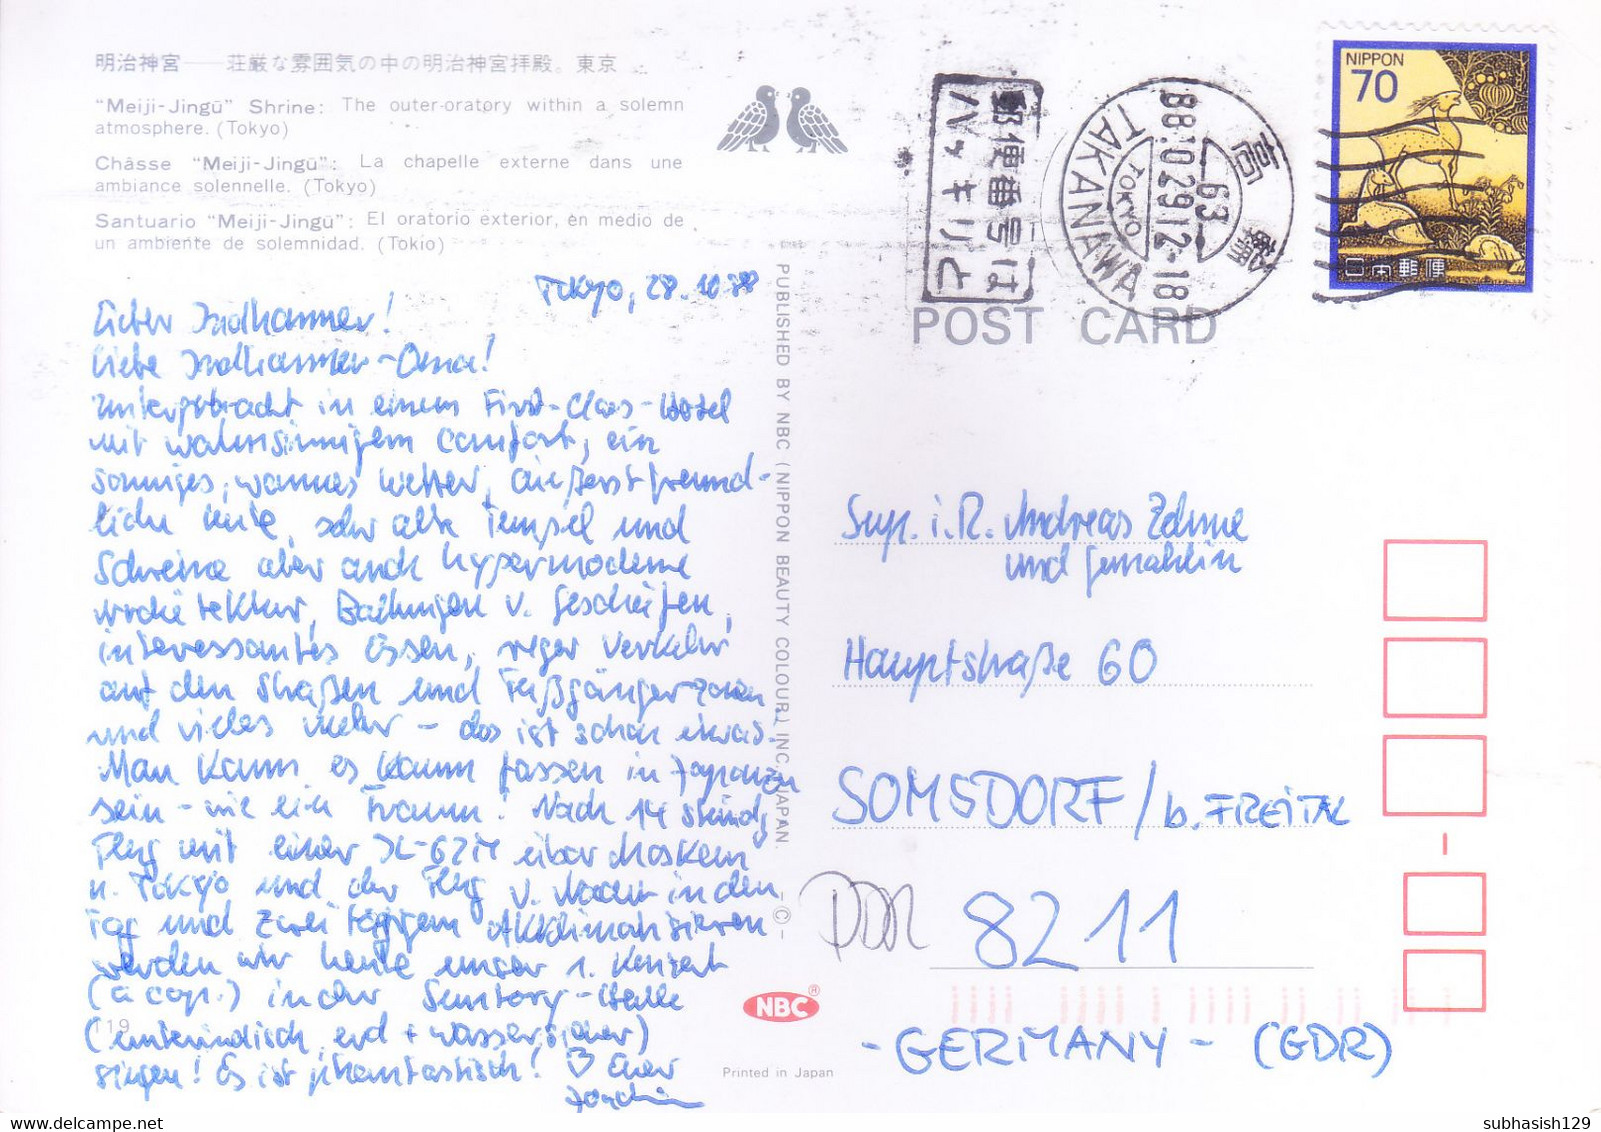 明治神宮——荘厳な雰囲気の中の明治神宮拝殿。東京
"Meiji-Jingū" Shrine: The outer-oratory within a solemn
atmosphere. (Tokyo)
Châsse "Meiji-Jingū": La chapelle externe dans une
ambiance solennelle. (Tokyo)
Santuario "Meiji-Jingū": El oratorio exterior, en medio de
un ambiente de solemnidad. (Tokio)
Tokyo, 28.10.88
Lieber
Liebe
Untergebracht in einem First-Class-Hotel
mit wahnsinnigem Comfort, ein
sonniges, warmes Wetter, äußerst freund-
liche Leute, sehr alte Tempel und
Schreine aber auch hypermoderne
Architektur, Ballungen v. Geschäften,
interessantes Essen, reger Verkehr
auf den Straßen und Fußgängerzonen
und vieles mehr - das ist schon etwas.
Man kann es kaum fassen in Japan zu
sein - wie ein Traum! Nach 14 stündg.
Flug mit einer IL-62M über Moskau
n. Tokyo und der Flug v. in den
Tag und zwei tägigem Akklimatisieren
werden wir heute unser 1. Konzert
(a cap.) in der Suntory-Halle
(unterirdisch, erd + wassersicher)
singen! Es ist phantastisch! Euer
Joachim
119
PUBLISHED BY NBC (NIPPON BEAUTY COLOUR) INC, JAPAN. -©-
NBC®
Printed in Japan
郵便番号は
ハッキリと
高輪
63
88.10.29 12-18
TOKYO
TAKANAWA
NIPPON
70
日本郵便
POST CARD
Sup. i.R. Andreas
und Gemahlin
Hauptstraße 60
SOMSDORF / b. FREITAL
DDR 8211
- GERMANY - (GDR)
subhasish129